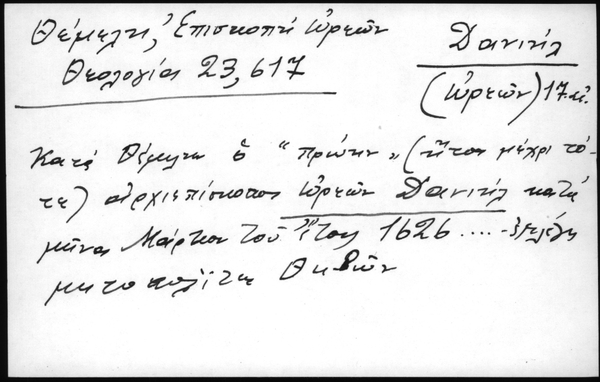 Θέμελη, Ἐπισκοπή Ὠρεῶν
Θεολογία 23, 617
Δανιήλ
(Ὠρεῶν) 17. αἰ.
Κατά Θέμελην ὁ "πρώην" (ἤτοι μέχρι τό-
τε) ἀρχιεπίσκοπος Ὠρεῶν Δανιήλ κατά
μῆνα Μάρτιον τοῦ ἔτους 1626 .... ἐξελέγη
μητροπολίτης Θηβῶν